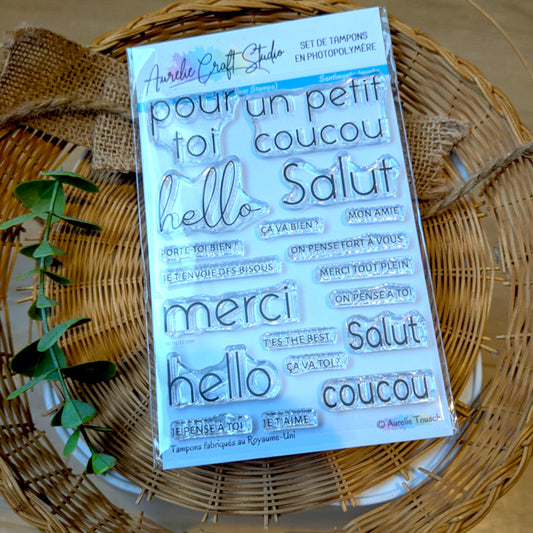 Aurelie Craft Studio
SET DE TAMPONS
EN PHOTOPOLYMÈRE
Stamps)
pour
toi
un petit
coucou
hello
Salut
MON AMIE
ÇA VA BIEN?
PORTE TOI BIEN!
ON PENSE FORT À VOUS
JE T'ENVOIE DES BISOUS
MERCI TOUT PLEIN
merci
ON PENSE À TOI
T'ES THE BEST
Salut
hello
ÇA VA TOI?
coucou
JE PENSE À TOI
JE T'AIME
© Aurelie Tousch
Tampons fabriqués au Royaume-Uni